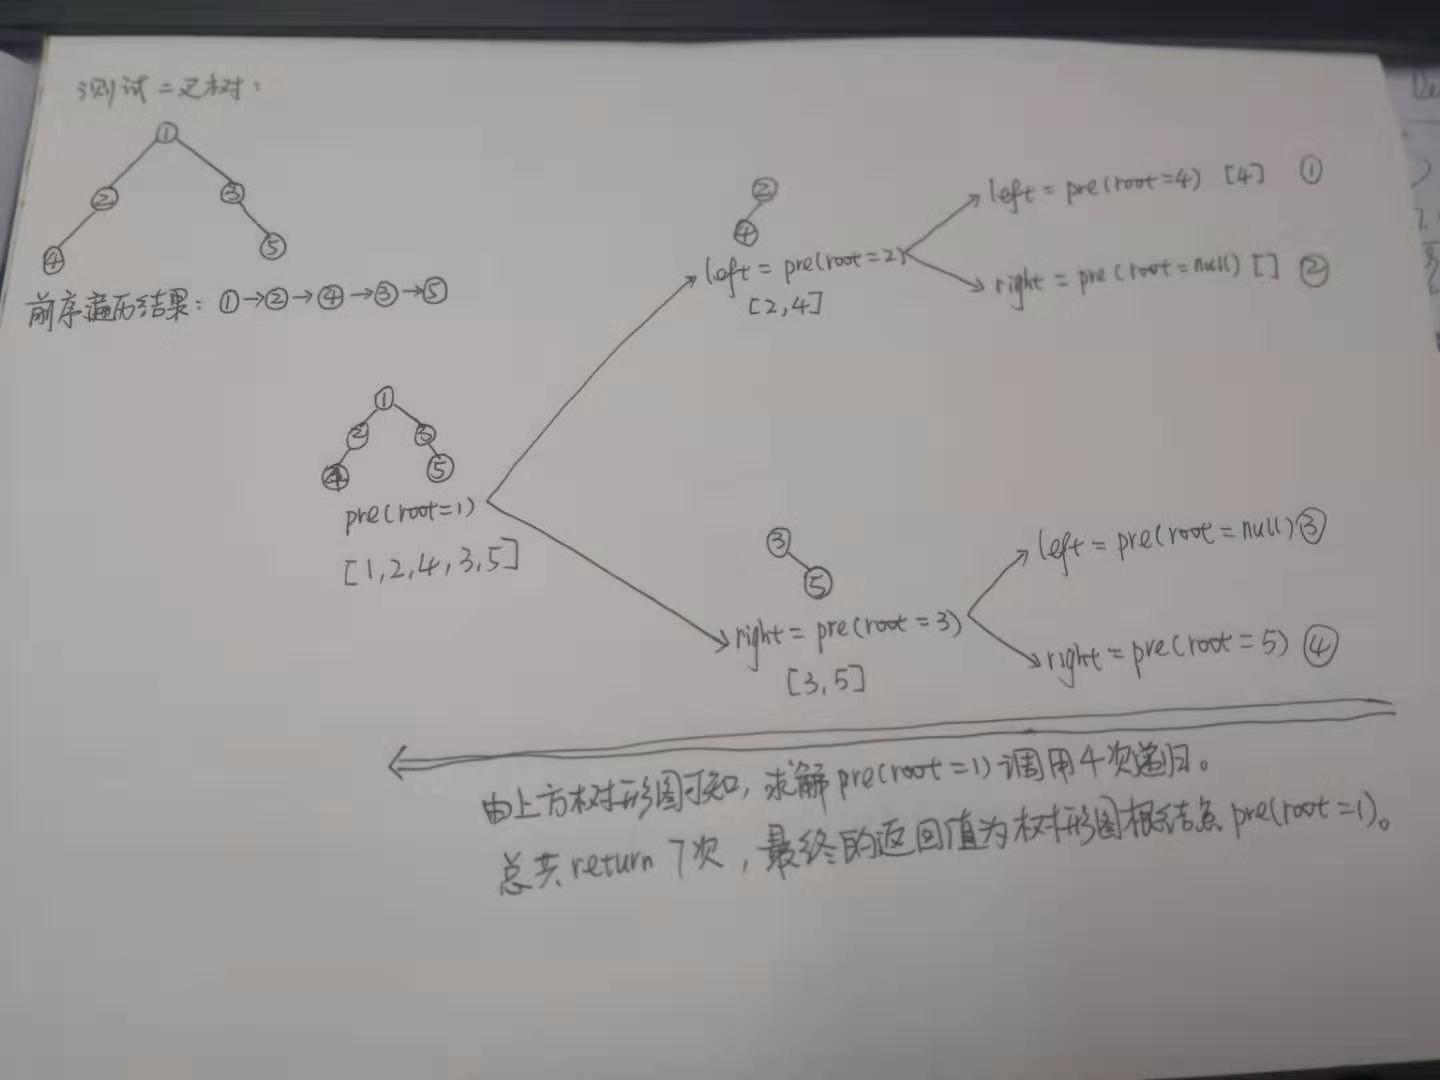 测试二叉树：
①
② ③
④ ⑤
前序遍历结果：①→②→④→③→⑤
②
④
left = pre(root=2)
[2,4]
left = pre(root=4) [4] ①
right = pre(root=null) [] ②
①
② ③
④ ⑤
pre(root=1)
[1,2,4,3,5]
③
⑤
right = pre(root=3)
[3,5]
left = pre(root=null) ③
right = pre(root=5) ④
由上方树形图可知，求解pre(root=1)调用4次递归。
总共return 7次，最终的返回值为树形图根结点pre(root=1)。